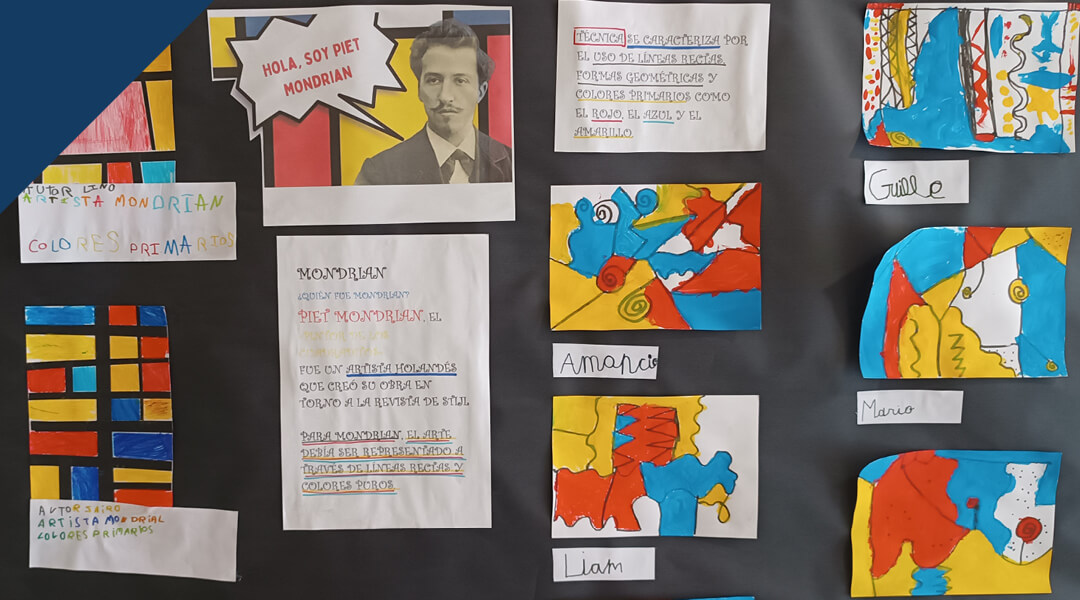 HOLA, SOY PIET
MONDRIAN
AUTOR LINO
ARTISTA MONDRIAN
COLORES PRIMARIOS
MONDRIAN
¿QUIÉN FUE MONDRIAN?
PIET MONDRIAN, EL
FUE UN ARTISTA HOLANDÉS
QUE CREÓ SU OBRA EN
TORNO A LA REVISTA DE STIJL
PARA MONDRIAN, EL ARTE
DEBÍA SER REPRESENTADO A
TRAVÉS DE LÍNEAS RECTAS Y
COLORES PUROS
AUTOR JAIRO
ARTISTA MONDRIAL
COLORES PRIMARIOS
TÉCNICA SE CARACTERIZA POR
EL USO DE LÍNEAS RECTAS,
FORMAS GEOMÉTRICAS Y
COLORES PRIMARIOS COMO
EL ROJO, EL AZUL Y EL
AMARILLO.
Amancio
Liam
Guille
Mario